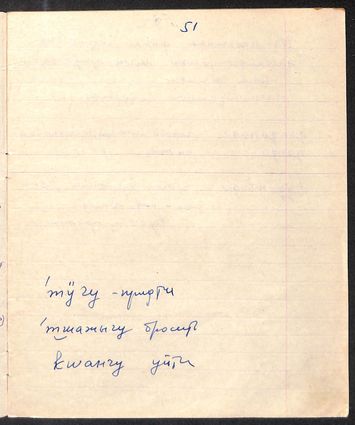 51
'тӱгу - придти
'тшажыгу бросить
кwангу уйти